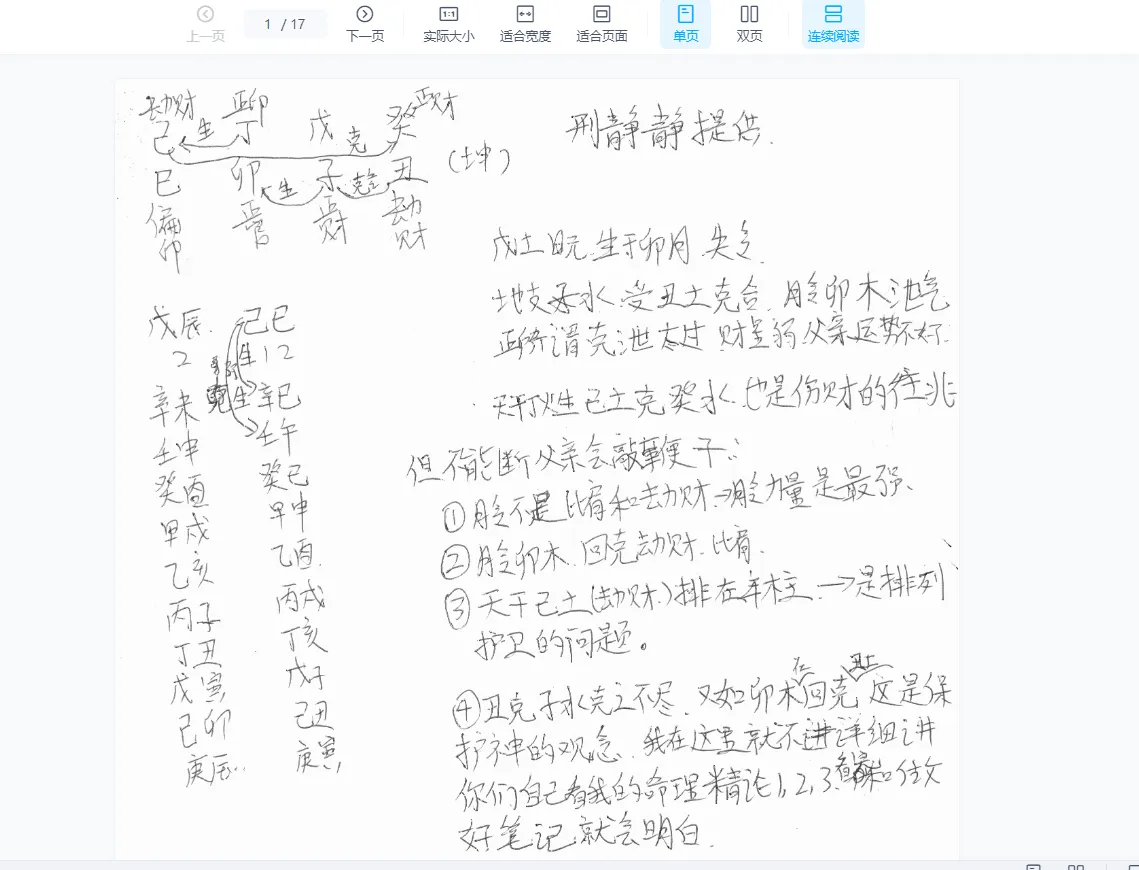 上一页
1 / 17
下一页
实际大小
适合宽度
适合页面
单页
双页
连续阅读
劫财 正印 正财
己 生 丁 戊 克 癸
巳 卯 生 子 克合 丑
(坤)
偏印 正官 正财 劫财
刑静静提供.
戊土日元.生于卯月.失令.
地支子水.受丑土克合.月令卯木泄气
正所谓克泄太过 财星弱.父亲运势不好.
天干丁火生己土克癸水.也是伤财的征兆
但不能断父亲会敲鞭子:
①月令不是比肩和劫财→月令力量是最强、
②月令卯木.回克劫财.比肩.
③天干己土(劫财)排在年柱.→是排列
护卫的问题。
④丑克子水克之不尽.又如卯木在回克丑土 这是保
护神的观念.我在这里就不进详细讲
你们自己看我的命理精论1,2,3.和做
好笔记.就会明白.
戊辰. 己巳
2 生12
辛未 生辛巳
壬申 壬午
癸酉 癸巳
甲戌 甲申
乙亥 乙酉.
丙子 丙戌
丁丑 丁亥
戊寅 戊子
己卯 己丑
庚辰.. 庚寅,